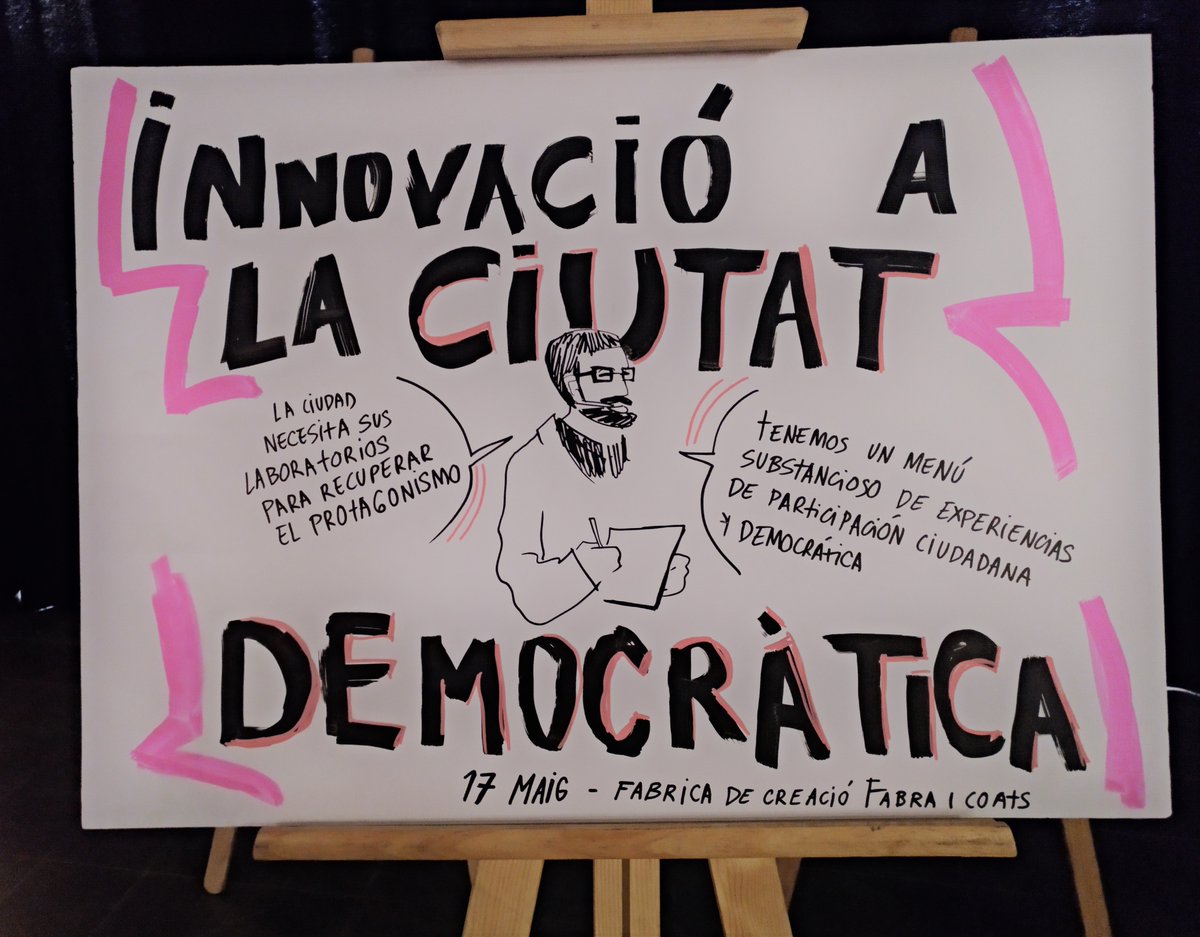 INNOVACIÓ A
LA CIUTAT
LA CIUDAD
NECESITA SUS
LABORATORIOS
PARA RECUPERAR
EL PROTAGONISMO
TENEMOS UN MENÚ
SUBSTANCIOSO DE EXPERIENCIAS
DE PARTICIPACIÓN CIUDADANA
Y DEMOCRÁTICA
DEMOCRÀTICA
17 MAIG - FABRICA DE CREACIÓ FABRA I COATS